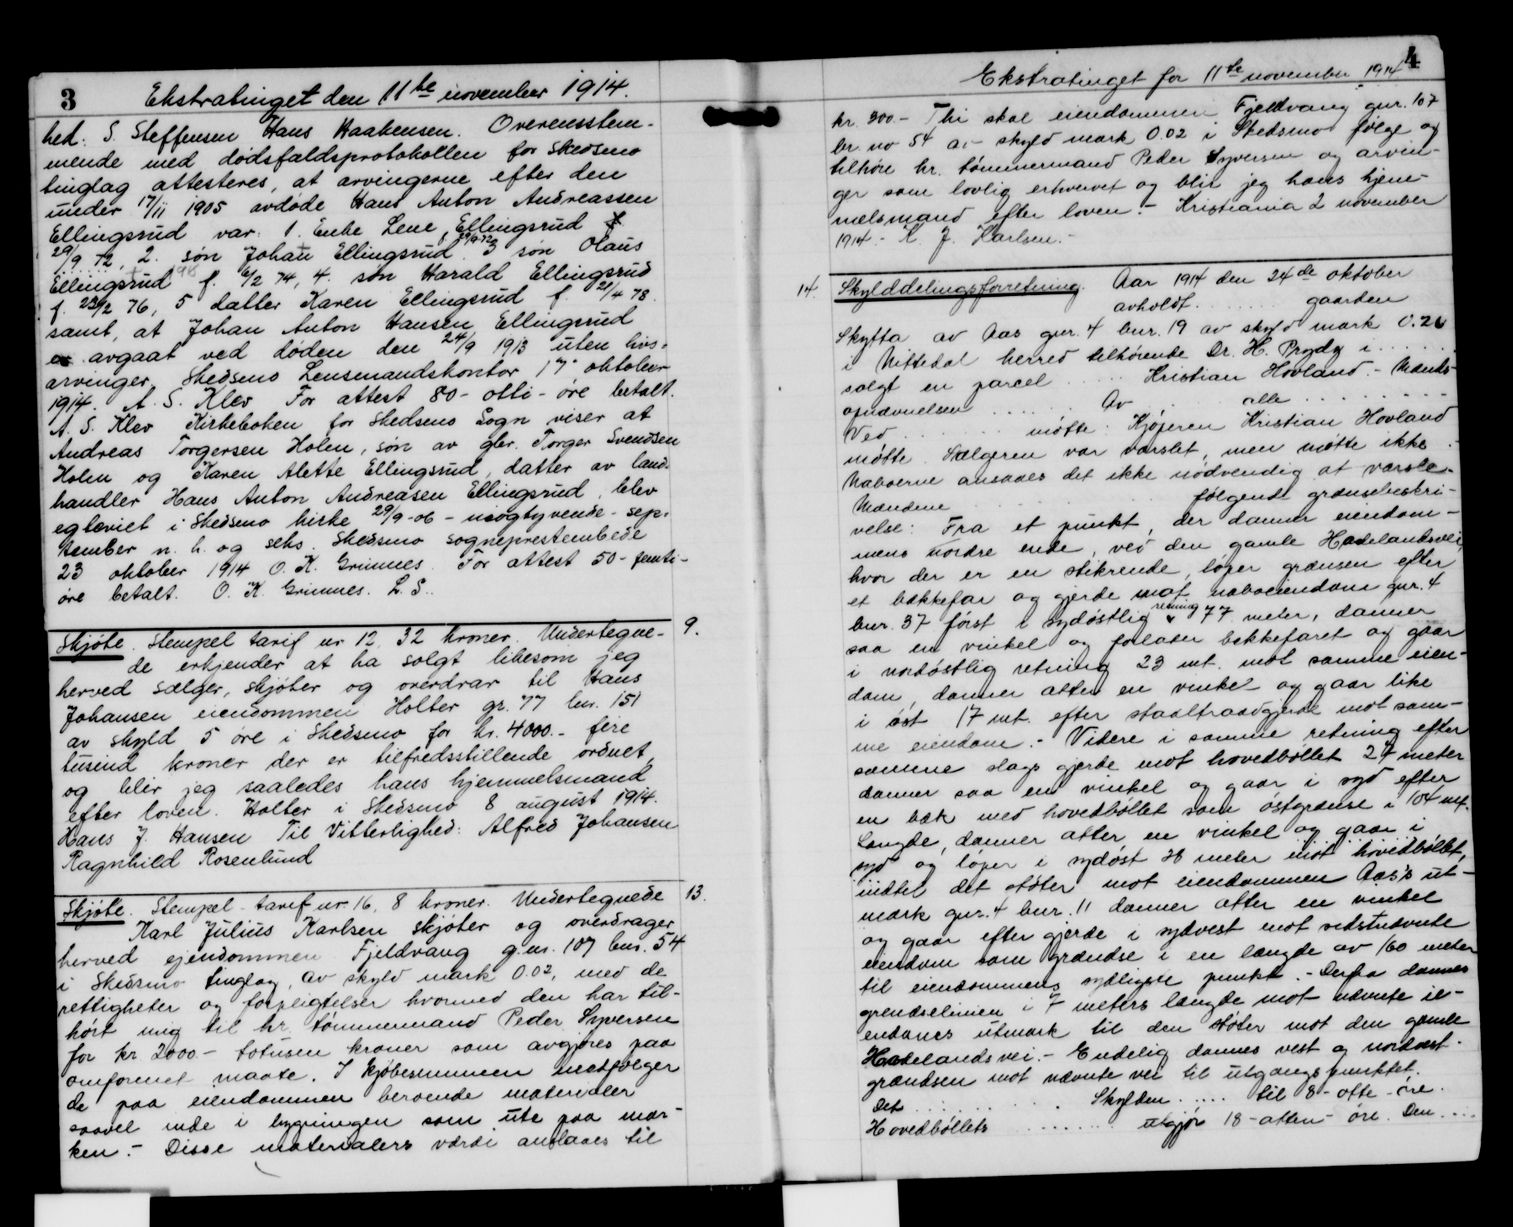 3
Ekstratinget den 11te november 1914.
hed: S. Steffensen Hans Haakensen. Overensstem-
mende med dødsfaldsprotokollen for Skedsmo
tinglag attesteres, at arvingerne efter den
under 17/11 1905 avdøde Hans Anton Andreassen
Ellingsrud var: 1. Enke Lene Ellingsrud f.
29/9 72, 2. søn Johan Ellingsrud 29/9-72 3 søn Olaus
Ellingsrud f. 6/2 74, 4. søn Harald Ellingsrud
f. 23/2 76, 5 datter Karen Ellingsrud f. 21/4 78.
samt, at Johan Anton Hansen Ellingsrud
er avgaat ved døden den 24/9 1913 uten livs-
arvinger. Skedsmo Lensmandskontor 17 oktober
1914. A. S. Klev For attest 80 - otti - øre betalt.
A. S. Klev Kirkeboken for Skedsmo Sogn viser at
Andreas Torgersen Holen, søn av gbr. Torger Svendsen
Holen og Karen Alette Ellingsrud, datter av land-
handler Hans Anton Andreasen Ellingsrud, blev
egteviet i Skedsmo kirke 29/9-06 - niogtyvende - sep-
tember n. h. og seks. Skedsmo sogneprestembede
23 oktober 1914 O. K. Grimnes. For attest 50 - femti-
øre betalt. O. K. Grimnes. L. S.
Skjøte. Stempel tarif nr 12. 32 kroner. Undertegne- 9.
de erkjender at ha solgt likesom jeg
herved sælger, skjøter og overdrar til Hans
Johansen eiendommen Holter gr. 77 bnr. 151
av skyld 5 øre i Skedsmo for kr. 4000.- fire
tusind kroner der er tilfredsstillende ordnet,
og blir jeg saaledes hans hjemmelsmand
efter loven. Holter i Skedsmo 8 august 1914.
Hans J. Hansen Til Vitterlighed: Alfred Johansen
Ragnhild Rosenlund
Skjøte. Stempel-tarif nr 16. 8 kroner. Undertegnede 13.
Karl Julius Karlsen skjøter og overdrager
herved ejendommen Fjeldvang g.nr. 107 bnr. 54
i Skedsmo tinglag, av skyld mark 0.02, med de
rettigheter og forpligtelser hvormed den har til-
hørt mig til hr. tømmermand Peder Syversen
for kr. 2000 - totusen kroner som avgjøres paa
omforenet maate. I kjøbesummen medfølger
de paa eiendommen beroende materialer
saavel inde i bygningen som ute paa mar-
ken.- Disse materialers værdi anslaaes til
4
Ekstratinget for 11te november 1914
kr. 300.- Thi skal eiendommen Fjeldvang gnr. 107
br. no 54 av skyld mark 0.02 i Skedsmo følge og
tilhøre hr. tømmermand Peder Syversen og arvin-
ger som lovlig erhvervet og blir jeg hans hjem-
melsmand efter loven.- Kristiania 2 november
1914.- K. J. Karlsen.-
14. Skylddelingsforretning. Aar 1914 den 24de oktober
avholdt ........ gaarden
Skytta av Aas gnr. 4 bnr. 19 av skyld mark 0.26
i Nittedal herred tilhørende Dr. H. Prydz i .....
solgt en parcel ..... Kristian Hovland - Mænds-
opnævnelsen ...... Av ...... alle ........
Ved ........ møtte: Kjøperen Kristian Hovland
møtte. Sælgeren var varslet, men møtte ikke.
Naboerne ansaaes det ikke nødvendig at varsle.
Mændene ........ følgende grænsebeskri-
velse: Fra et punkt, der danner eiendom-
mens nordre ende, ved den gamle Hadelandsvei,
hvor der er en stikrende, løper grænsen efter
et bækkefar og gjerde mot naboeiendom gnr. 4
bnr. 37 først i sydøstlig retning 77 meter, danner
saa en vinkel og forlater bækkefaret og gaar
i nordøstlig retning 23 mt. mot samme eien-
dom, danner atter en vinkel og gaar like
i øst 17 mt. efter staaltraadgjerde mot sam-
me eiendom.- Videre i samme retning efter
samme slags gjerde mot hovedbøllet 27 meter
danner saa en vinkel og gaar i syd efter
en bæk med hovedbøllet som østgrænse i 104 mt.
længde, danner atter en vinkel og gaar i
syd og løper i sydøst 28 meter mot hovedbøllet,
indtil det støter mot eiendommen Aas's ut-
mark gnr. 4 bnr. 11 danner atter en vinkel
og gaar efter gjerde i sydvest mot sidstnævnte
eiendom som grændse i en længde av 160 meter
til eiendommens sydligste punkt.- Derfra dannes
grendselinien i 7 meters længde mot nævnte ei-
endoms utmark til den støter mot den gamle
Hadelandsvei.- Endelig dannes vest og nordvest-
grændsen mot nævnte vei til utgangspunktet.
Det ........ Skylden ..... til 8 - otte - øre.
Hovedbøllets ........ utgjør 18 - atten - øre. Den ....